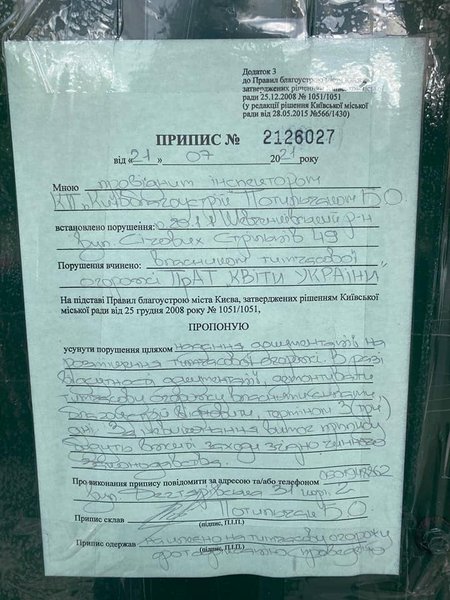 Додаток 3
до Правил благоустрою міста Києва,
затверджених рішенням Київської міської
ради 25.12.2008 № 1051/1051
(у редакції рішення Київської міської
ради від 28.05.2015 №566/1430)
ПРИПИС № 2126027
від «21» 07 2021 року
Мною провідним інспектором
КП Київблагоустрій Потильчаком Б О
встановлено порушення: п. 20.1.1 Шевченківський р-н
вул. Січових Стрільців 49
Порушення вчинено: власником тимчасової
огорожі ПрАТ "КВІТИ УКРАЇНИ"
На підставі Правил благоустрою міста Києва, затверджених рішенням Київської
міської ради від 25 грудня 2008 року № 1051/1051,
ПРОПОНУЮ
усунути порушення шляхом надання документації на
розміщення тимчасової огорожі. В разі
відсутності документації, демонтувати
тимчасову огорожу власними силами
благоустрій відновити терміном 3 (три)
дні. За невиконання вимог припису
будуть вжиті заходи згідно чинного
законодавства.
Про виконання припису повідомити за адресою та/або телефоном
вул. Дегтярівська 31 корп. 2
Припис склав Потильчак Б О
(підпис, П.І.П.)
Припис одержав наклеєно на тимчасову огорожу
(підпис, П.І.П.) фотофіксацію проведено